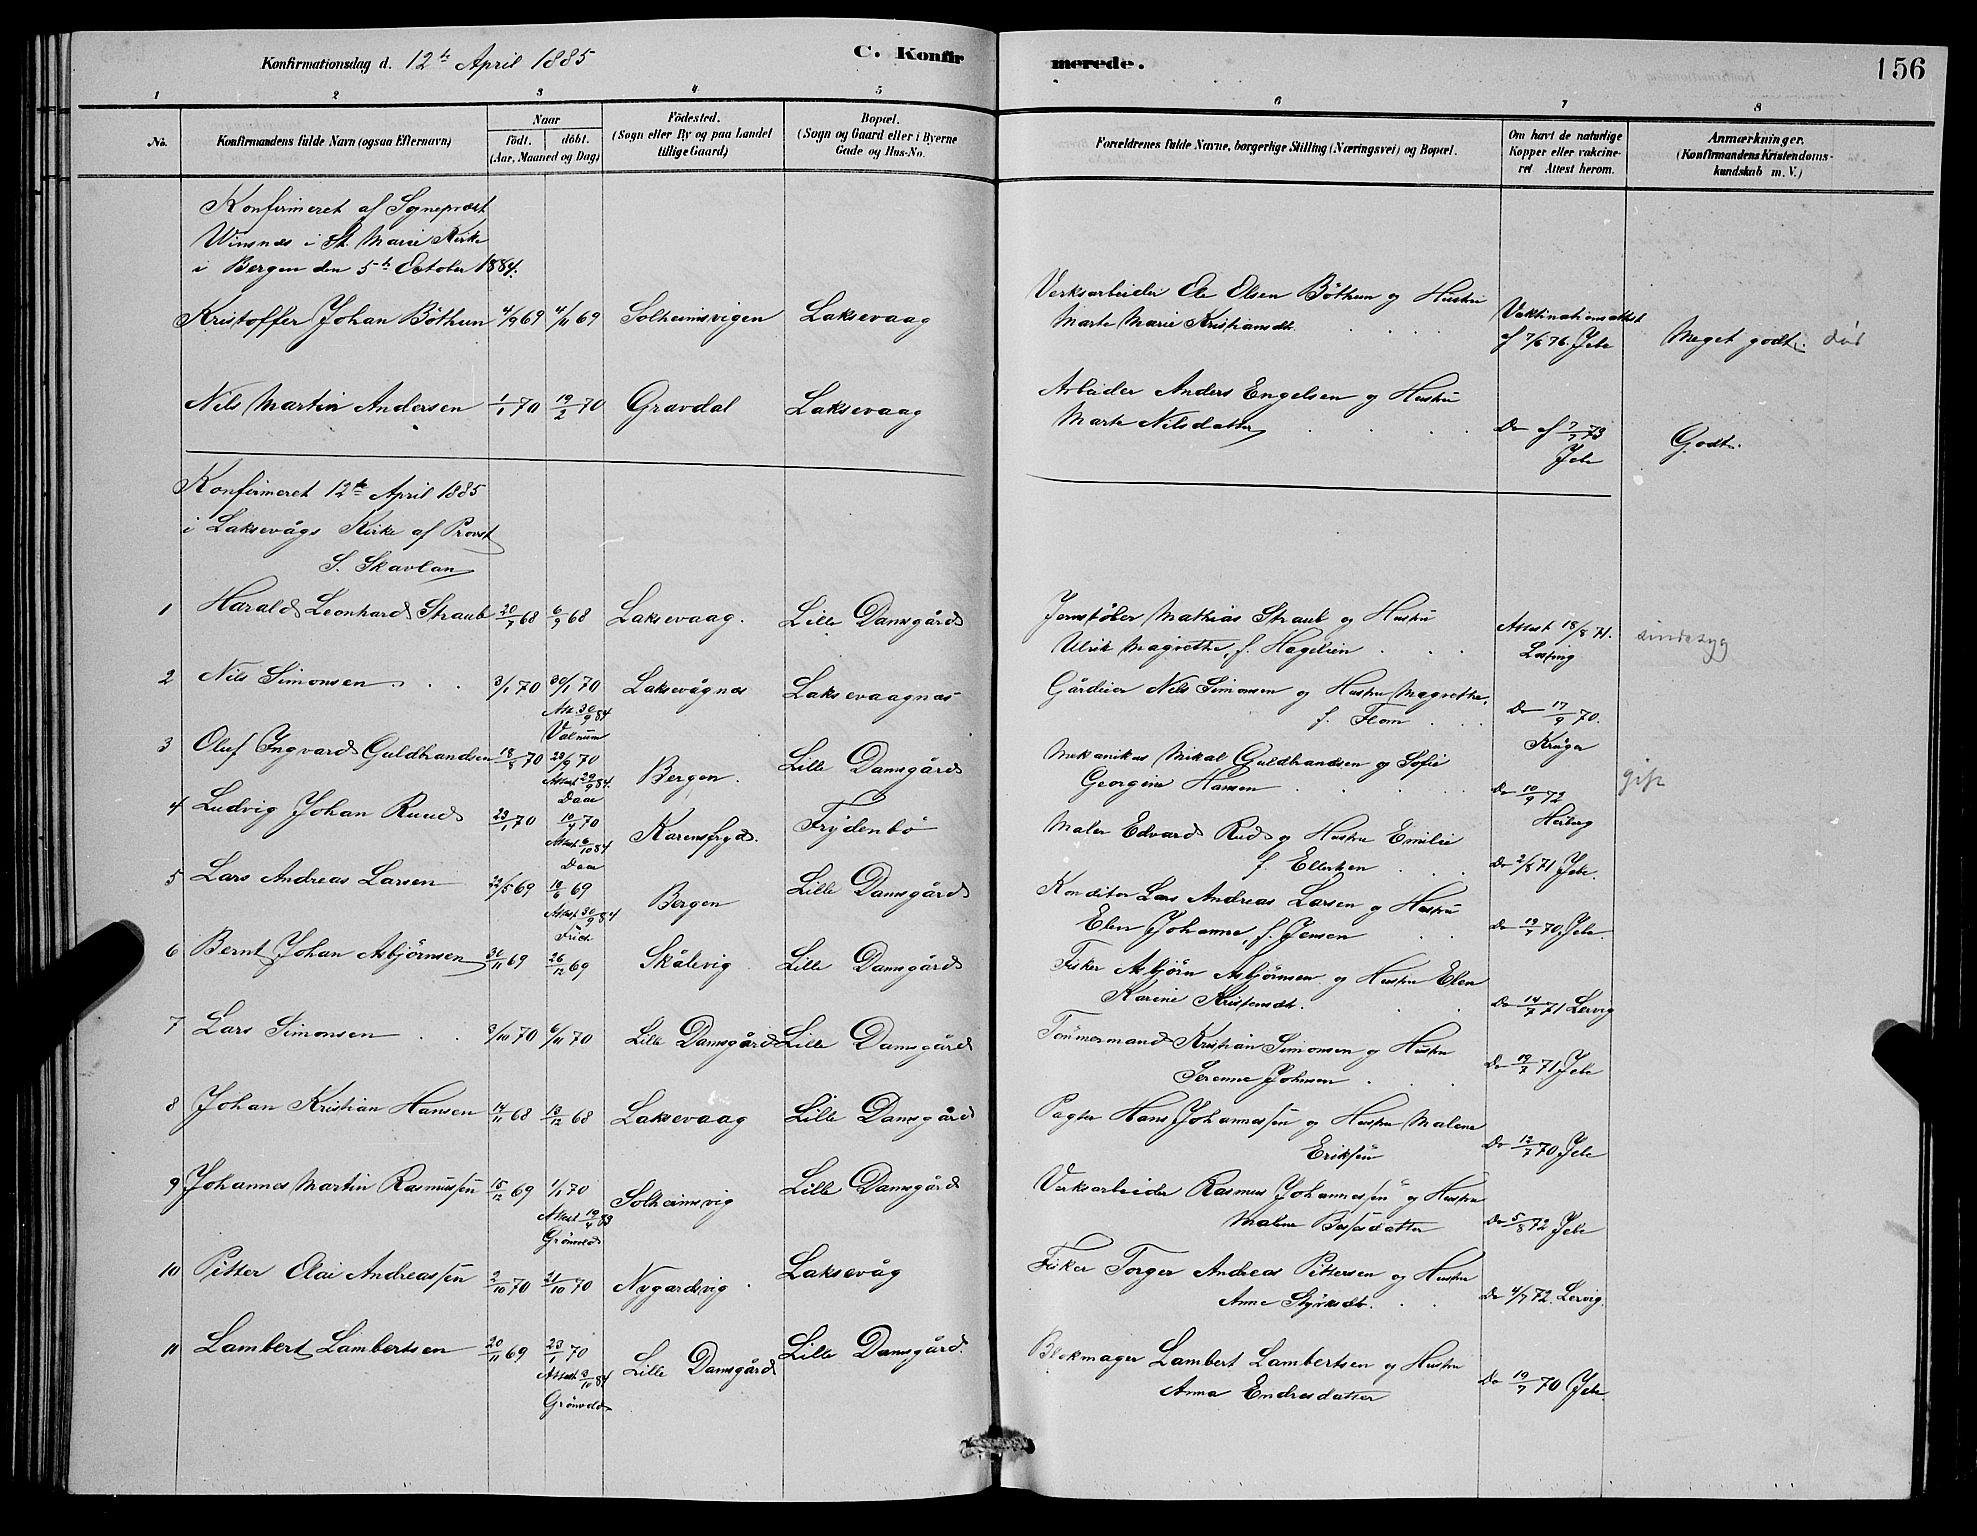 Konfirmationsdag d. 12te April 1885
C. Konfir
merede.
156
1 2 3 4 5 6 7 8
No.
Konfirmandens fulde Navn (ogsaa Efternavn)
Naar
födt. döbt.
(Aar, Maaned og Dag)
Födested.
(Sogn eller By og paa Landet
tillige Gaard)
Bopæl.
(Sogn og Gaard eller i Byerne
Gade og Hus-No.
Forældrenes fulde Navne, borgerlige Stilling (Næringsvei) og Bopæl.
Om havt de naturlige
Kopper eller vakcine-
ret Attest herom.
Anmærkninger.
(Konfirmandens Kristendoms-
kundskab m. V.)
Konfirmeret af Sogneprest
Winsnæs i St. Marie Kirke
i Bergen den 5te October 1884.
Kristoffer Johan Böthun 4/9 69 4/11 69 Solheimsvigen Laksevaag
Verksarbeider Ole Olsen Böthun og Hustru
Marte Marie Kristiansdt.
Vaktinationsattest
af 7/6 76. Jebe
Meget godt. död
Nils Martin Andersen 1/1 70 19/2 70 Gravdal Laksevaag
Arbeider Anders Engelsen og Hustru
Marte Nilsdatter
Do af 7/7 73
Jebe
Godt.
Konfirmeret 12te April 1885
i Laksevågs Kirke af Provst
S. Skavlan
1 Harald Leonhard Straub 20/7 68 6/9 68 Laksevaag. Lille Damsgård
Jernstöber Mathias Straub og Hustru
Ulrik Magrethe, f. Hagelien
Attest 18/8 71.
sindssyg
2 Nils Simonsen 3/1 70 30/1 70 Laksevågnæs Laksevaagnæs
Att. 30/9 84
Gårdeier Nils Simonsen og Hustru Magrethe,
f. Flom
Do 17/9 70.
Krüger
3 Oluf Ingvard Guldbrandsen 18/8 70 23/9 70 Bergen. Lille Damsgård
Attest 29/9 84.
Daae
Mekanikus Mikal Guldbrandsen og Sofie
Georgine Hansen
Do 10/9 72
Heiberg
gift
4 Ludvig Johan Ruud 23/1 70 10/4 70 Karensfryd. Frydenbö
Attest 6/10 84
Daae
Maler Edvard Rud og Hustru Emilie
f. Ellertsen
Do 2/8 71 Jebe.
5 Lars Andreas Larsen 22/5 69 18/6 69 Bergen Lille Damsgård
Attest 30/9 84
Frich
Konditor Lars Andreas Larsen og Hustru
Elen Johanne, f. Jensen
Do 19/7 70. Jebe.
6 Bernt Johan Asbjörnsen 30/11 69 26/12 69 Skålevig Lille Damsgård
Fisker Asbjörn Asbjörnsen og Hustru Elen
Karine Kristensdt.
Do 14/7 71 Lervig
7 Lars Simonsen 3/10 70 6/11 70 Lille Damsgård Lille Damsgård
Tömmermand Kristian Simonsen og Hustru
Serenne Johnsen
Do 19/7 71 Jebe
8 Johan Kristian Hansen 14/11 68 13/12 68 Laksevaag Lille Damsgård
Pagter Hans Johannessen og Hustru Malene
Eriksen
Do 12/7 70 Jebe
9 Johannes Martin Rasmussen 15/12 69 1/1 70 Solheimsvig Lille Damsgård
Attest 19/4 83
Grönvold
Verksarbeider Rasmus Johannessen og Hustru
Malene Bessesdatter
Do 5/8 72 Jebe
10 Pitter Olai Andreassen 2/10 70 21/10 70 Nygardsvig Laksevåg
Fisker Torger Andreas Pittersen og Hustru
Anne Styrksdt.
Do 4/7 72. Lervig.
11 Lambert Lambertsen 20/11 69 23/1 70 Lille Damsgård Lille Damsgård.
Attest 3/10 84
Grönvold
Blokmager Lambert Lambertsen og Hustru
Anna Endresdatter
Do 19/7 70 Jebe